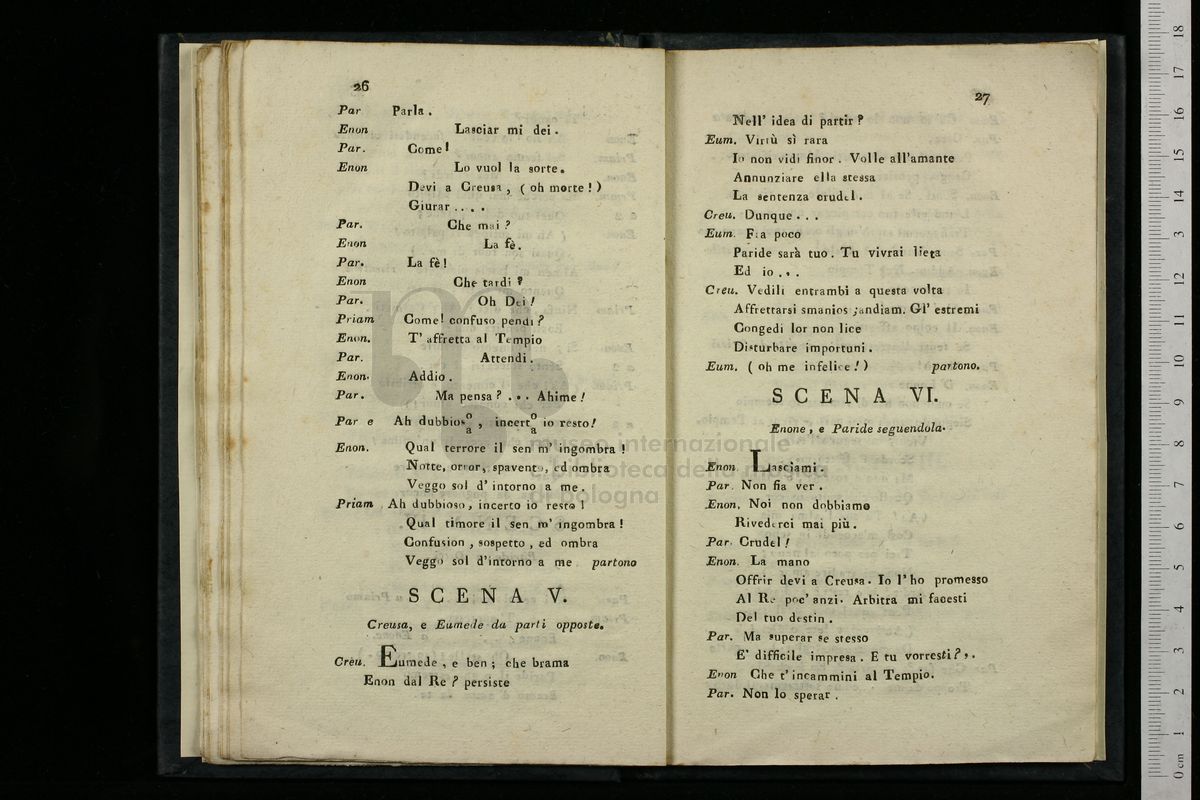 26
Par Parla.
Enon Lasciar mi dei.
Par. Come!
Enon Lo vuol la sorte.
Devi a Creusa, (oh morte!)
Giurar....
Par. Che mai?
Enon La fè.
Par. La fè!
Enon Che tardi?
Par. Oh Dei!
Priam Come! confuso pendi?
Enon. T' affretta al Tempio
Par. Attendi.
Enon. Addio.
Par. Ma pensa? ... Ahime!
Par e Ah dubbioso/a, incerto/a io resto!
Enon. Qual terrore il sen m' ingombra!
Notte, orror, spavento, ed ombra
Veggo sol d' intorno a me.
Priam Ah dubbioso, incerto io resto!
Qual timore il sen m' ingombra!
Confusion, sospetto, ed ombra
Veggo sol d'intorno a me partono
SCENA V.
Creusa, e Eumede da parti opposte.
Creu. Eumede, e ben; che brama
Enon dal Re? persiste
27
Nell' idea di partir?
Eum. Virtù sì rara
Io non vidi finor. Volle all'amante
Annunziare ella stessa
La sentenza crudel.
Creu. Dunque...
Eum. Fra poco
Paride sarà tuo. Tu vivrai lieta
Ed io...
Creu. Vedili entrambi a questa volta
Affrettarsi smaniosi; andiam. Gl' estremi
Congedi lor non lice
Disturbare importuni.
Eum. (oh me infelice!) partono.
SCENA VI.
Enone, e Paride seguendola.
Enon. Lasciami.
Par. Non fia ver.
Enon. Noi non dobbiamo
Rivederci mai più.
Par. Crudel!
Enon. La mano
Offrir devi a Creusa. Io l'ho promesso
Al Re poc' anzi. Arbitra mi facesti
Del tuo destin.
Par. Ma superar se stesso
E' difficile impresa. E tu vorresti?..
Enon Che t'incammini al Tempio.
Par. Non lo sperar.
museo internazionale
e biblioteca della musica
di bologna
0 cm 1 2 3 4 5 6 7 8 9 10 11 12 13 14 15 16 17 18